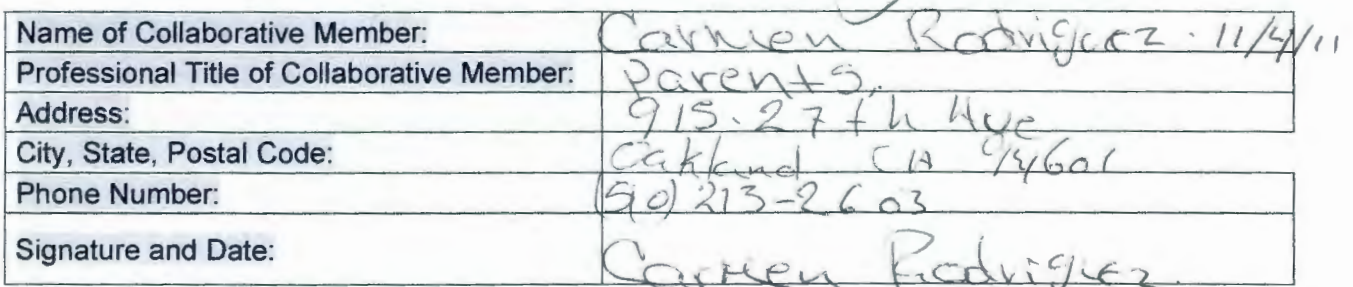 Name of Collaborative Member: Carmen Rodriguez. 11/4/11
Professional Title of Collaborative Member: Parents.
Address: 915. 27th Ave
City, State, Postal Code: Oakland CA 94601
Phone Number: (510) 213-2603
Signature and Date: Carmen Rodriguez.